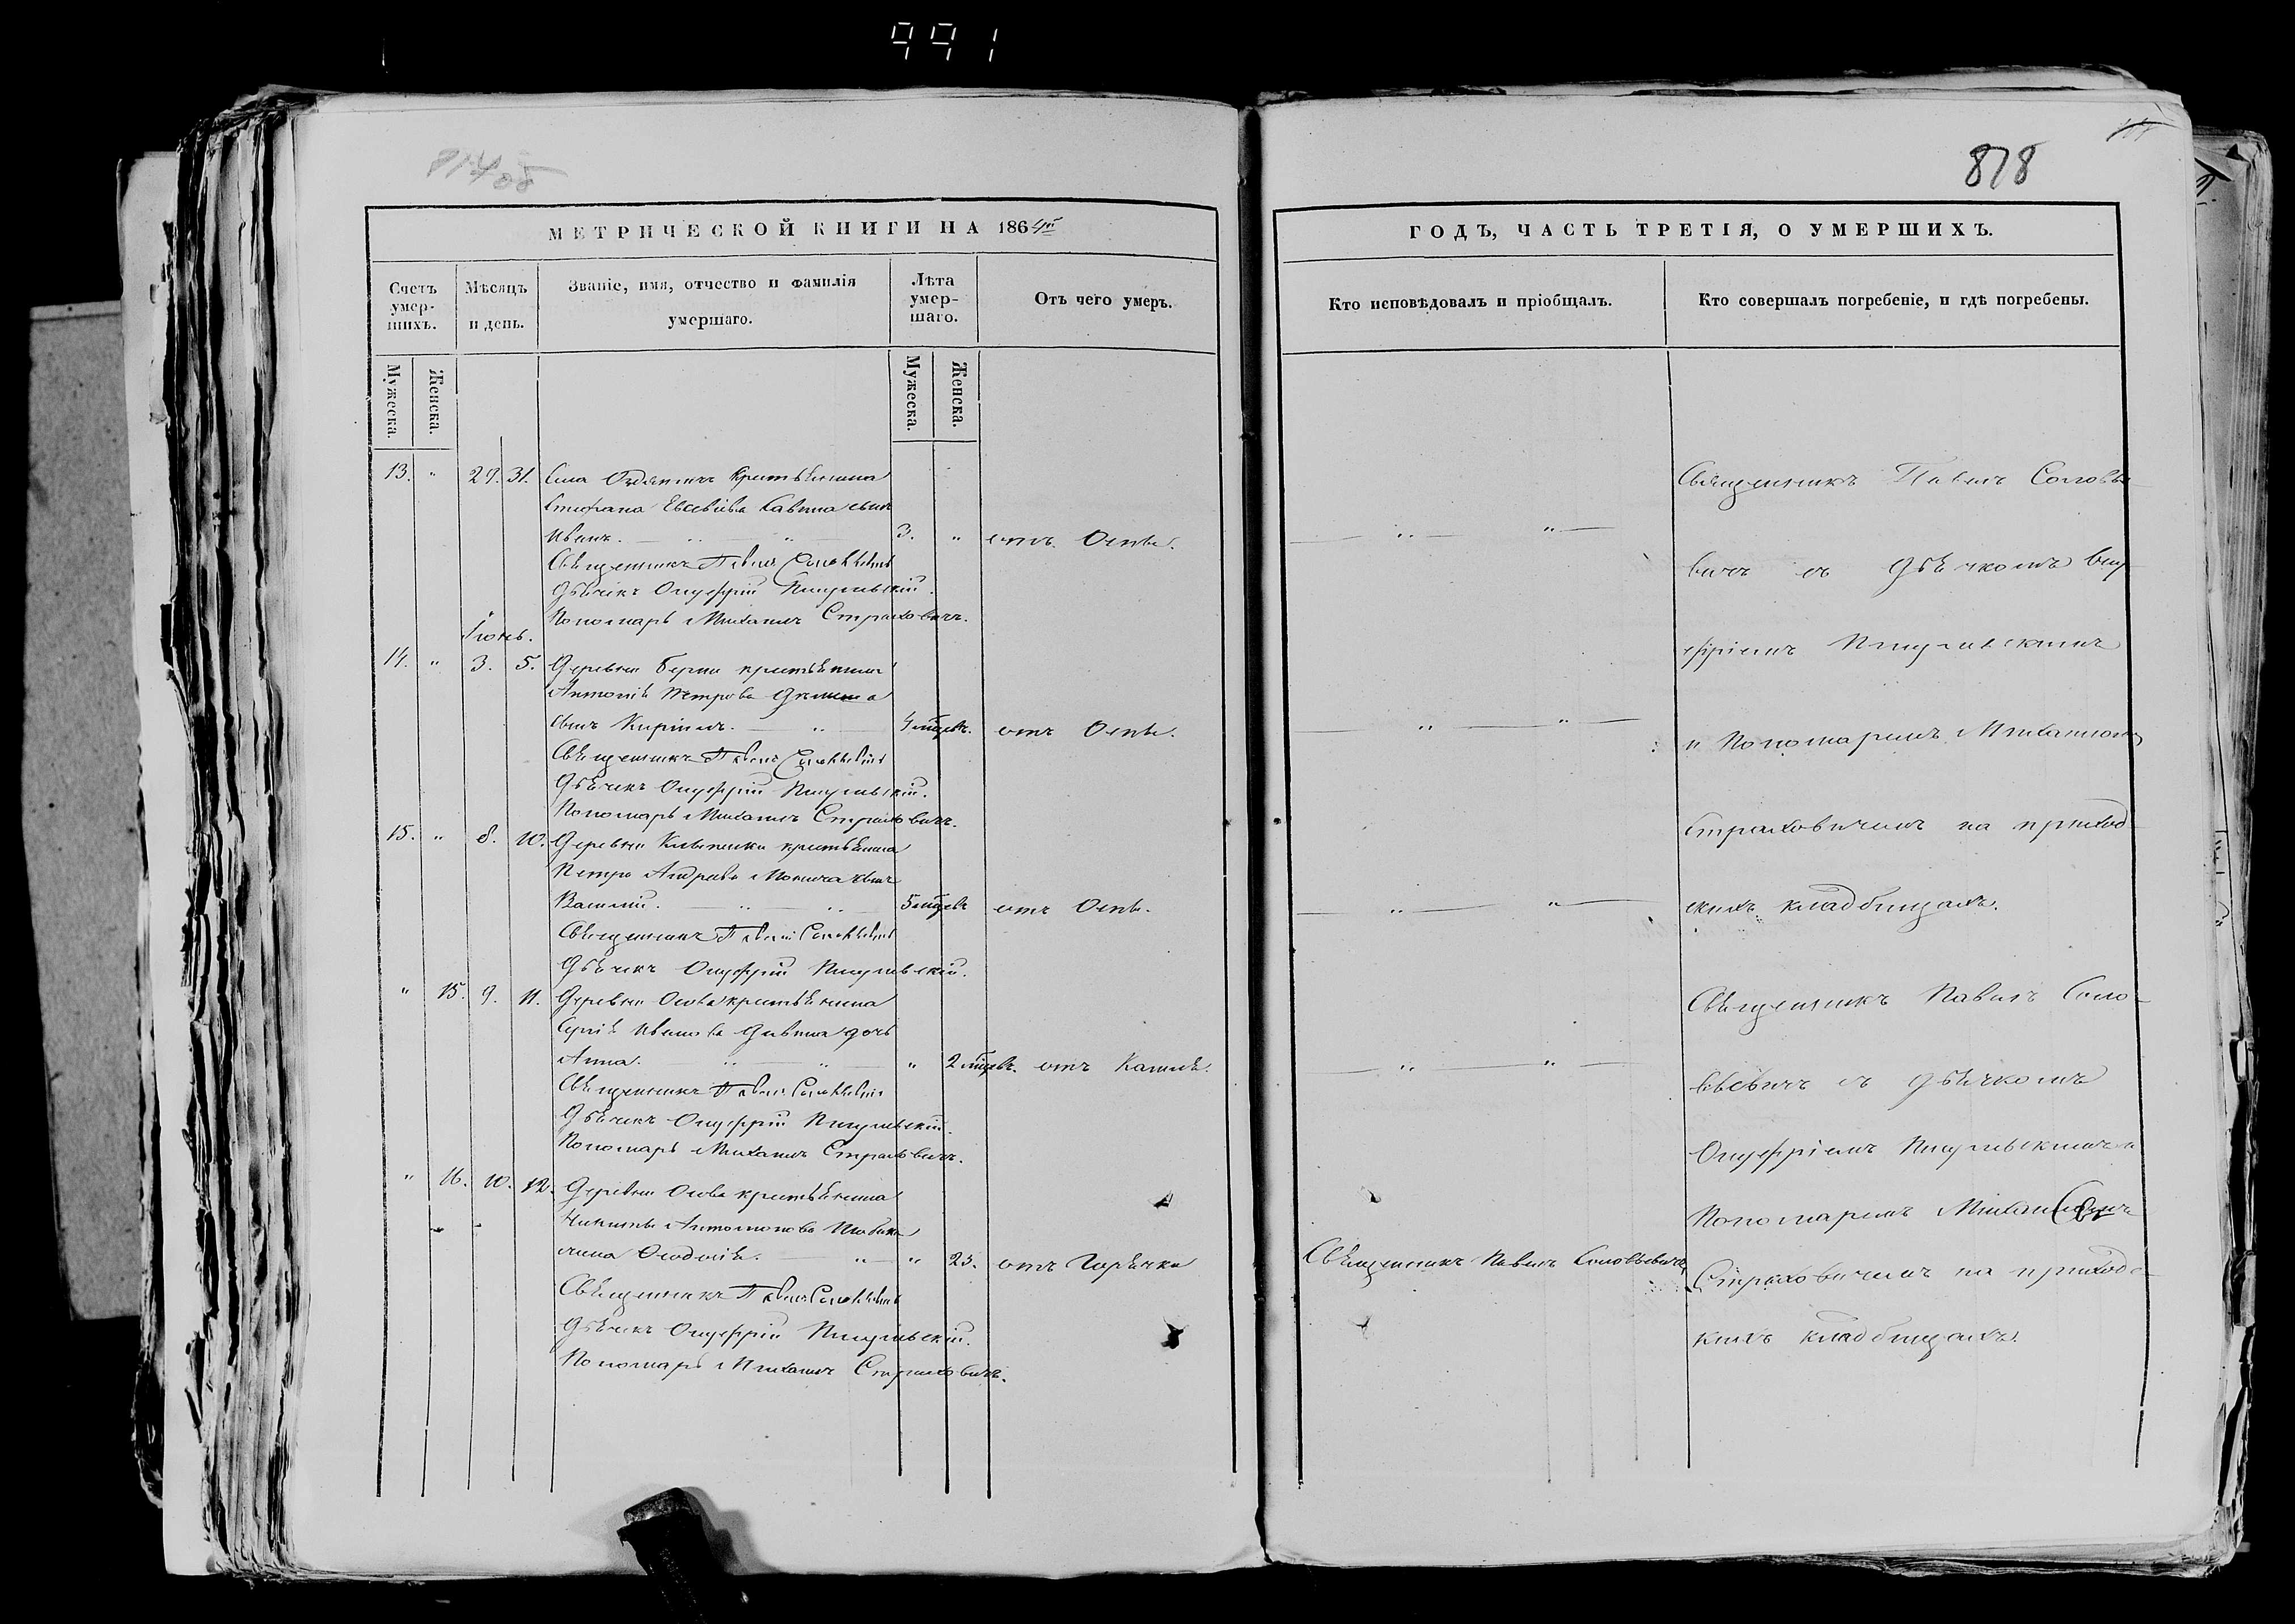 991
878
МЕТРИЧЕСКОЙ КНИГИ НА 1864й
ГОДЪ, ЧАСТЬ ТРЕТІЯ, О УМЕРШИХЪ.
Счетъ умер-шихъ.
Мѣсяцъ и день.
Званіе, имя, отчество и фамилія умершаго.
Лѣта умер-шаго.
Отъ чего умеръ.
Кто исповѣдовалъ и пріобщалъ.
Кто совершалъ погребеніе, и гдѣ погребены.
Мужеска.
Женска.
Мужеска.
Женска.
13. " 29. 31. Села крестьянина
Стефана Евсевіева Савина сынъ
Иванъ. 3. " отъ Оспы.
Священникъ Павелъ Соловьевичъ
Дьячекъ Онуфрій
Пономарь Михаилъ Страховичъ.
Іюнь.
14. " 3. 5. Деревни крестьянина
Антонія Петрова
сынъ Кириллъ. 4 мѣсяцъ. отъ Оспы.
Священникъ Павелъ Соловьевичъ
Дьячекъ Онуфрій
Пономарь Михаилъ Страховичъ.
15. " 8. 10. Деревни крестьянина
Петра Андреева сынъ
Василій. 5 мѣсяцъ отъ Оспы.
Священникъ Павелъ Соловьевичъ
Дьячекъ Онуфрій
" 15. 9. 11. Деревни Осова крестьянина
Сергія Иванова дочь
Анна. " 2 мѣсяцъ. отъ Кашля.
Священникъ Павелъ Соловьевичъ
Дьячекъ Онуфрій
Пономарь Михаилъ Страховичъ.
" 16. 10. 12. Деревни Осова крестьянина
Никиты Антонова
жена Ѳеодосія. " 23. отъ Горячки
Священникъ Павелъ Соловьевичъ
Дьячекъ Онуфрій
Пономарь Михаилъ Страховичъ.
Священникъ Павелъ Соловьевичъ
Священникъ Павелъ Соловье-
вичъ съ Дьячкомъ Ону-
фріемъ
и Пономаремъ Михаиломъ
Страховичемъ на приход-
скихъ кладбищахъ.
Священникъ Павелъ Соло-
вьевичъ съ дьячкомъ
Онуфріемъ и
Пономаремъ Михаиломъ
Страховичемъ на приходс-
кихъ кладбищахъ.